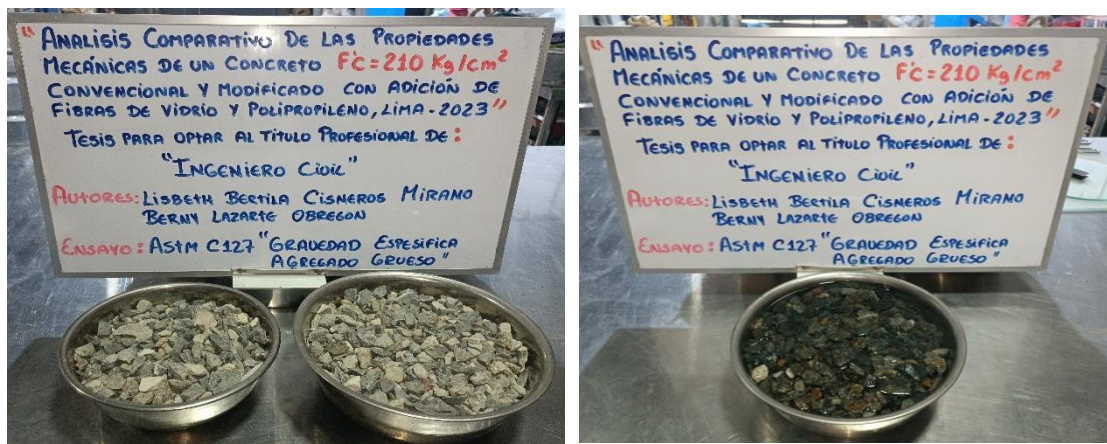 "ANALISIS COMPARATIVO DE LAS PROPIEDADES
MECÁNICAS DE UN CONCRETO F'C=210 Kg/cm²
CONVENCIONAL Y MODIFICADO CON ADICIÓN DE
FIBRAS DE VIDRIO Y POLIPROPILENO, LIMA-2023"
TESIS PARA OPTAR AL TÍTULO PROFESIONAL DE:
"INGENIERO CIVIL"
AUTORES: LISBETH BERTILA CISNEROS MIRANO
BERNY LAZARTE OBREGON
ENSAYO: ASTM C127 "GRAVEDAD ESPESIFICA
AGREGADO GRUESO"
"ANALISIS COMPARATIVO DE LAS PROPIEDADES
MECÁNICAS DE UN CONCRETO F'C=210 Kg/cm²
CONVENCIONAL Y MODIFICADO CON ADICIÓN DE
FIBRAS DE VIDRIO Y POLIPROPILENO, LIMA-2023"
TESIS PARA OPTAR AL TÍTULO PROFESIONAL DE:
"INGENIERO CIVIL"
AUTORES: LISBETH BERTILA CISNEROS MIRANO
BERNY LAZARTE OBREGON
ENSAYO: ASTM C127 "GRAVEDAD ESPESIFICA
AGREGADO GRUESO"